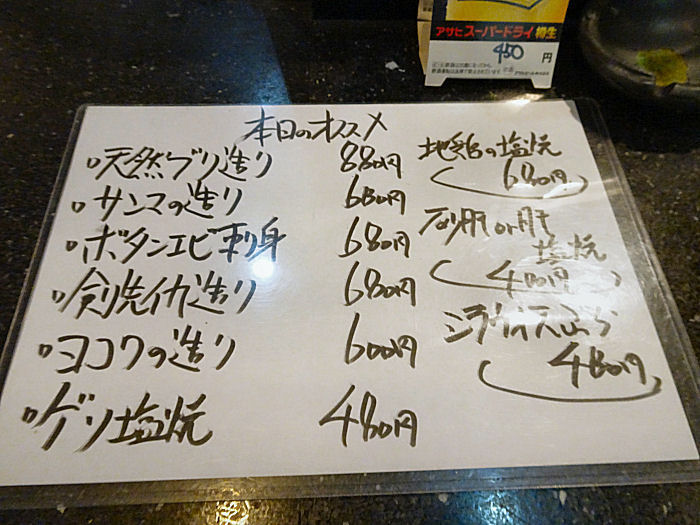 アサヒスーパードライ 樽生
450円
本日のオススメ
天然ブリ造り 880円
サンマの造り 680円
ボタンエビ刺身 680円
剣先イカ造り 680円
ヨコワの造り 600円
ゲソ塩焼 480円
地鶏の塩焼
680円
砂肝 or 肝
塩焼
400円
シラウオ天ぷら
480円